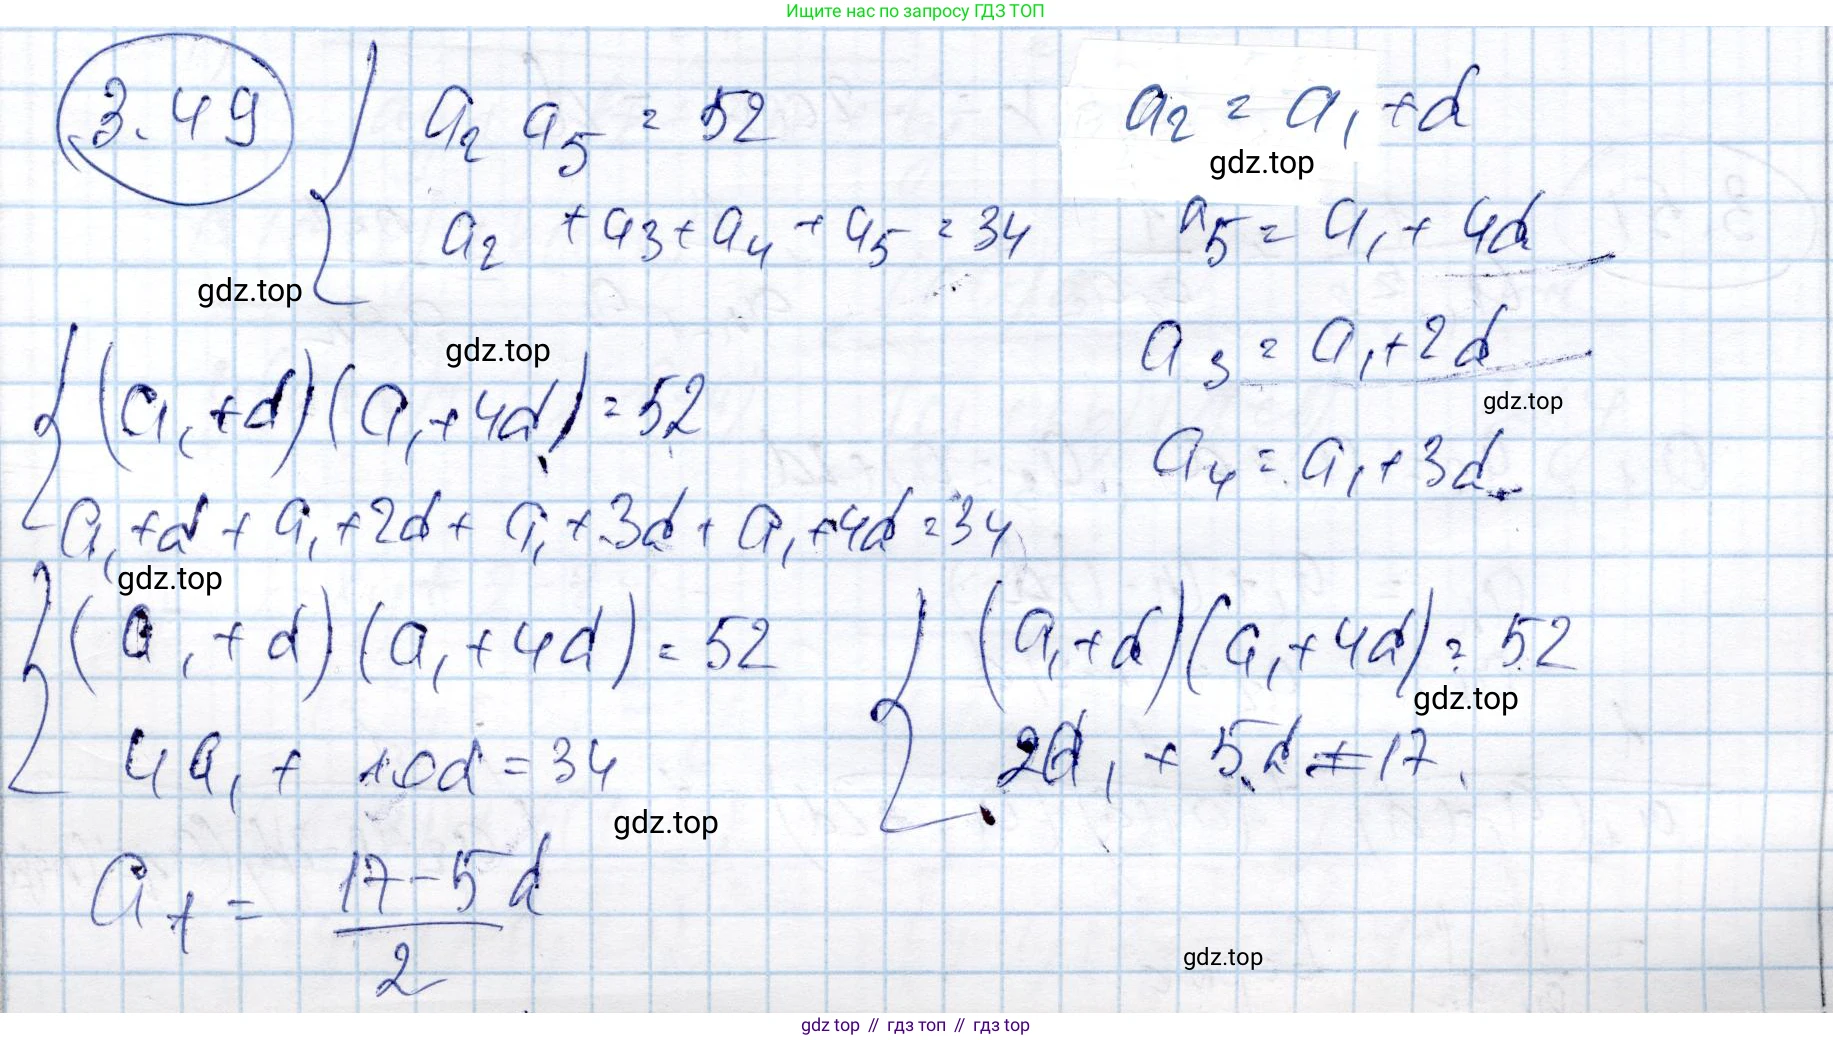 Ищите нас по запросу ГДЗ ТОП
3.49
a₂ a₅ = 52
a₂ + a₃ + a₄ + a₅ = 34
a₂ = a₁ + d
gdz.top
a₅ = a₁ + 4d
gdz.top
a₃ = a₁ + 2d
gdz.top
gdz.top
a₄ = a₁ + 3d
(a₁ + d)(a₁ + 4d) = 52
a₁ + d + a₁ + 2d + a₁ + 3d + a₁ + 4d = 34
gdz.top
(a₁ + d)(a₁ + 4d) = 52
4a₁ + 10d = 34
(a₁ + d)(a₁ + 4d) = 52
gdz.top
2a₁ + 5d = 17
gdz.top
a₁ = (17 - 5d)/2
gdz.top
gdz top // гдз топ // гдз top